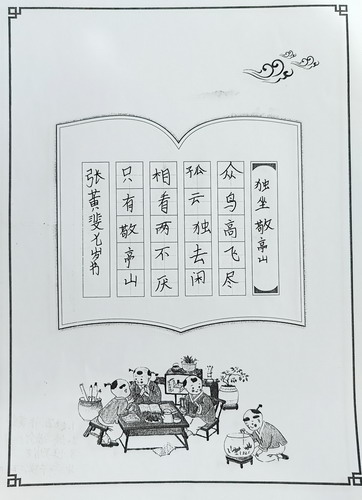 独坐敬亭山
众鸟高飞尽
孤云独去闲
相看两不厌
只有敬亭山
张黄斐七岁书